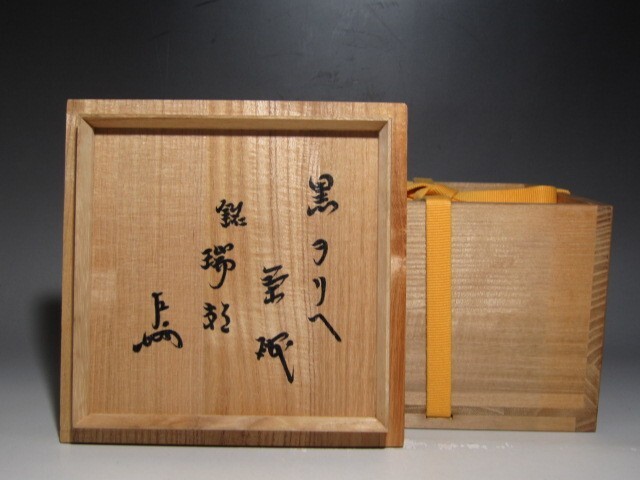 黒ヲリヘ
茶碗
銘
瑞彩